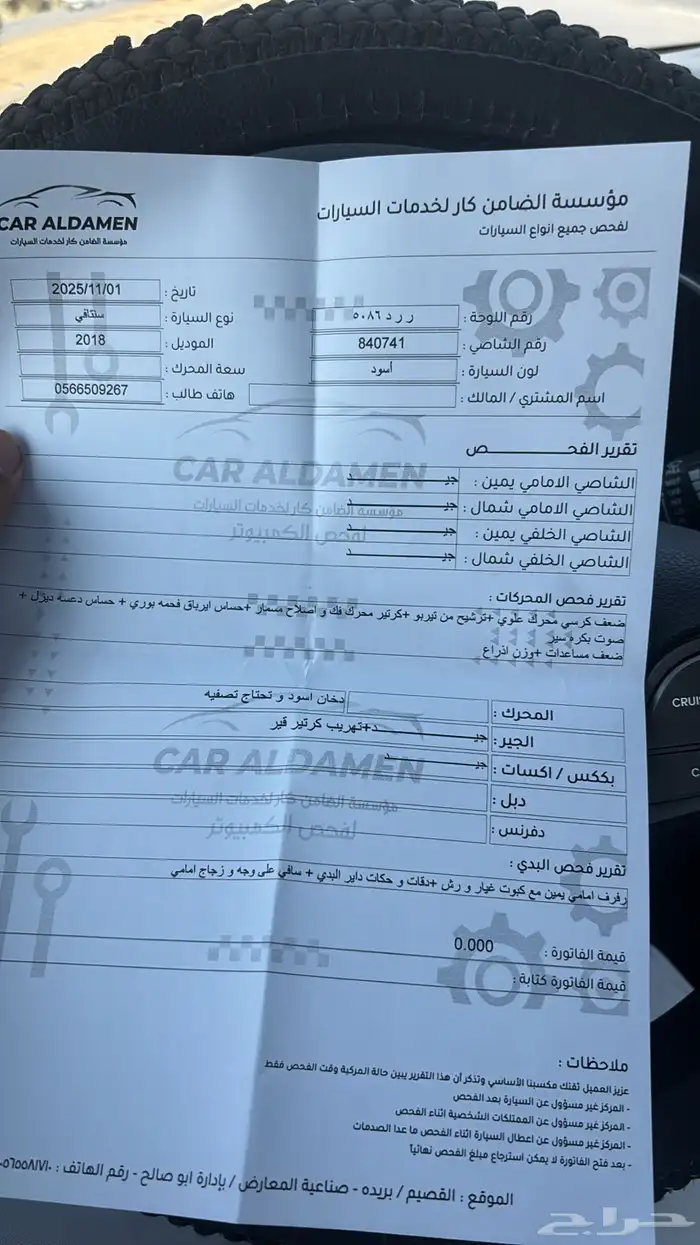 مؤسسة الضامن كار لخدمات السيارات
لفحص جميع انواع السيارات
CAR ALDAMEN
مؤسسة الضامن كار لخدمات السيارات
تاريخ : 2025/11/01
رقم اللوحة : ر ر د ٥٠٨٦
نوع السيارة : سنتافي
رقم الشاصي : 840741
الموديل : 2018
لون السيارة : أسود
سعة المحرك :
اسم المشتري / المالك :
هاتف طالب : 0566509267
تقرير الفحـــــــــص
CAR ALDAMEN
مؤسسة الضامن كار لخدمات السيارات
لفحص الكمبيوتر
الشاصي الامامي يمين : جيـــــــــد
الشاصي الامامي شمال : جيـــــــــد
الشاصي الخلفي يمين : جيـــــــــد
الشاصي الخلفي شمال : جيـــــــــد
تقرير فحص المحركات :
ضعف كرسي محرك علوي +ترشيح من تيربو +كرتير محرك فك و اصلاح مسمار +حساس ايرباق فحمه بوري + حساس دعسه ديزل +
صوت بكره سير
ضعف مساعدات +وزن اذراع
المحرك : دخان اسود و تحتاج تصفيه
الجير : جيـــــــــد+تهريب كرتير قير
بككس / اكسات : جيـــــــــد
CAR ALDAMEN
مؤسسة الضامن كار لخدمات السيارات
لفحص الكمبيوتر
دبل :
دفرنس :
تقرير فحص البدي :
رفرف امامي يمين مع كبوت غيار و رش +دقات و حكات داير البدي + سافي على وجه و زجاج امامي
قيمة الفاتورة : 0.000
قيمة الفاتورة كتابة :
ملاحظات :
عزيز العميل ثقتك مكسبنا الأساسي وتذكر أن هذا التقرير يبين حالة المركبة وقت الفحص فقط
- المركز غير مسؤول عن السيارة بعد الفحص
- المركز غير مسؤول عن الممتلكات الشخصية اثناء الفحص
- المركز غير مسؤول عن اعطال السيارة اثناء الفحص ما عدا الصدمات
- بعد فتح الفاتورة لا يمكن استرجاع مبلغ الفحص نهائياً
الموقع : القصيم / بريده - صناعية المعارض / بإدارة ابو صالح - رقم الهاتف :
CRUI
حراج